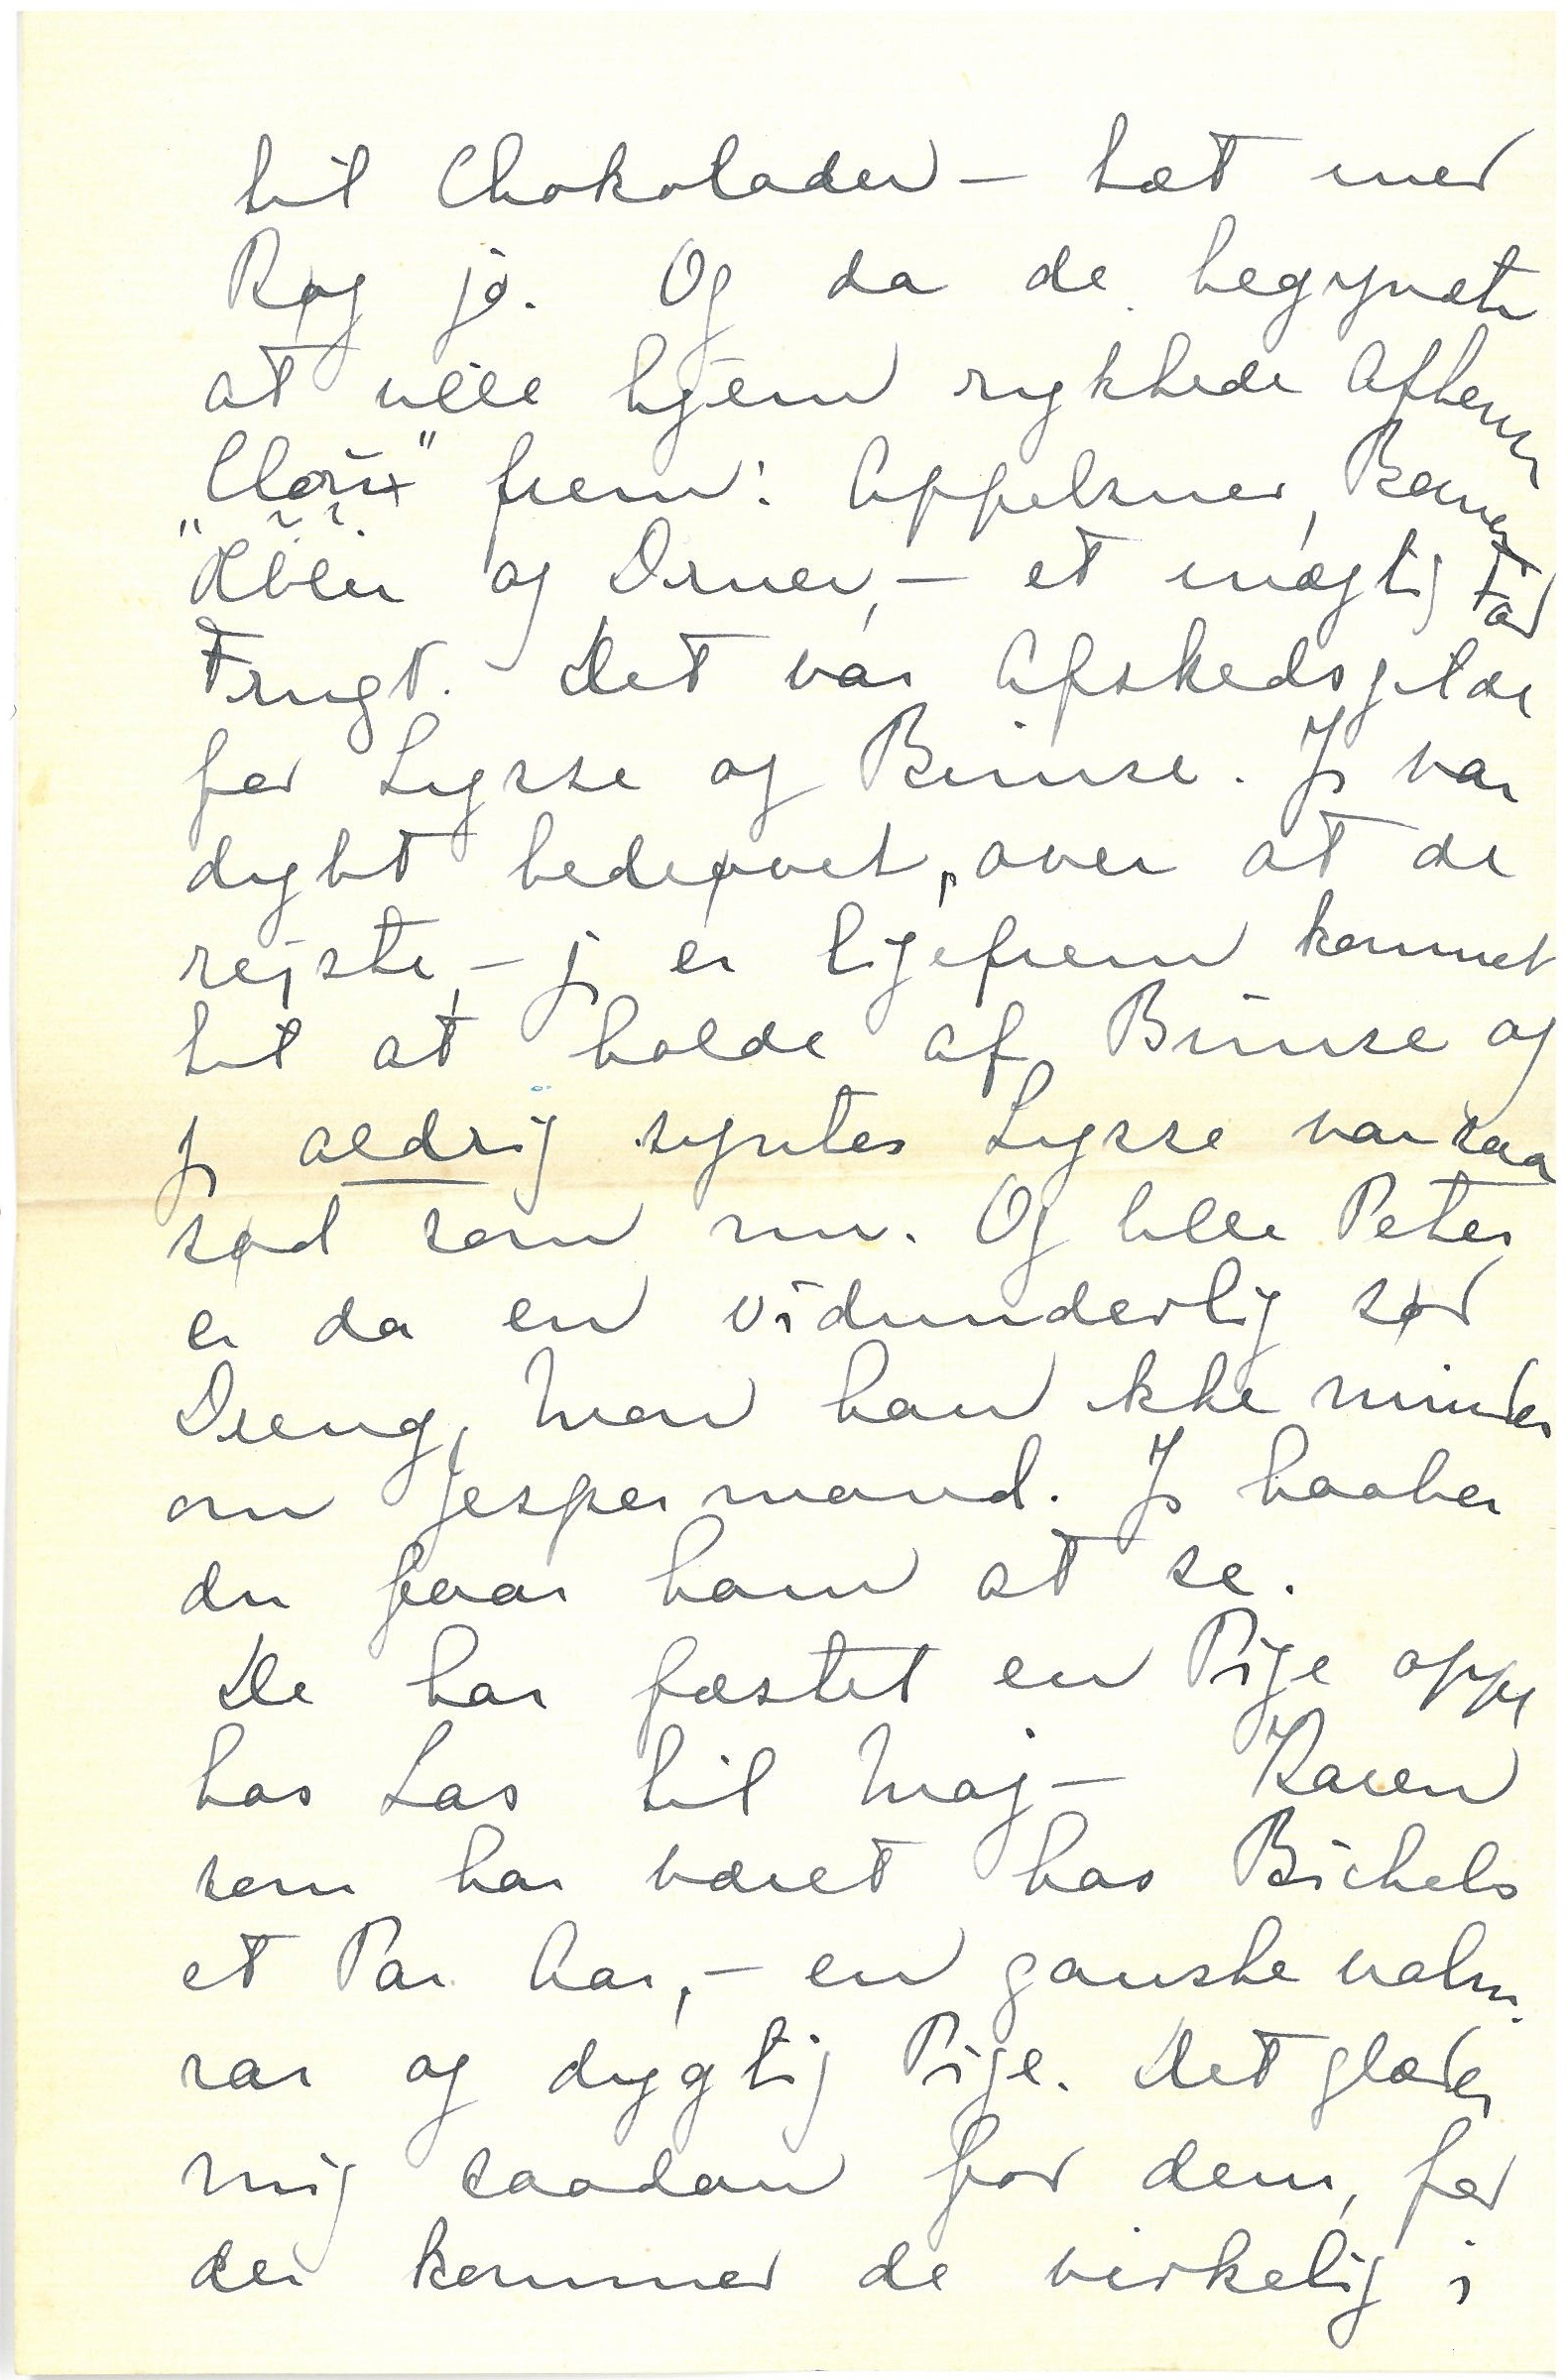 til Chokoladen – tæt med
Røg jo. Og da de begyndte
at ville hjem rykkede Aftenens
"Clou" frem: Appelsiner, Bananer
"Æbler og Druer, – et mægtig Fad
Frugt. Det var Afskedsgilde
for Lysse og Bimse. Jg var
dybt bedrøvet, over at de
rejste, – jg er ligefrem kommet
til at holde af Bimse og
jg aldrig syntes Lysse var saa
sød som nu. Og lille Peter
er da en vidunderlig sød
Dreng, Mon han ikke minder
om Jespermand. Jg haaber
du faar ham at se.
De har fæstet en Pige oppe
hos Las til Maj – Karen
som har været hos Bichels
et Par Aar, – en ganske
rar og dygtig Pige. Det glæder
mig saadan for dem, for
der kommer de virkelig i